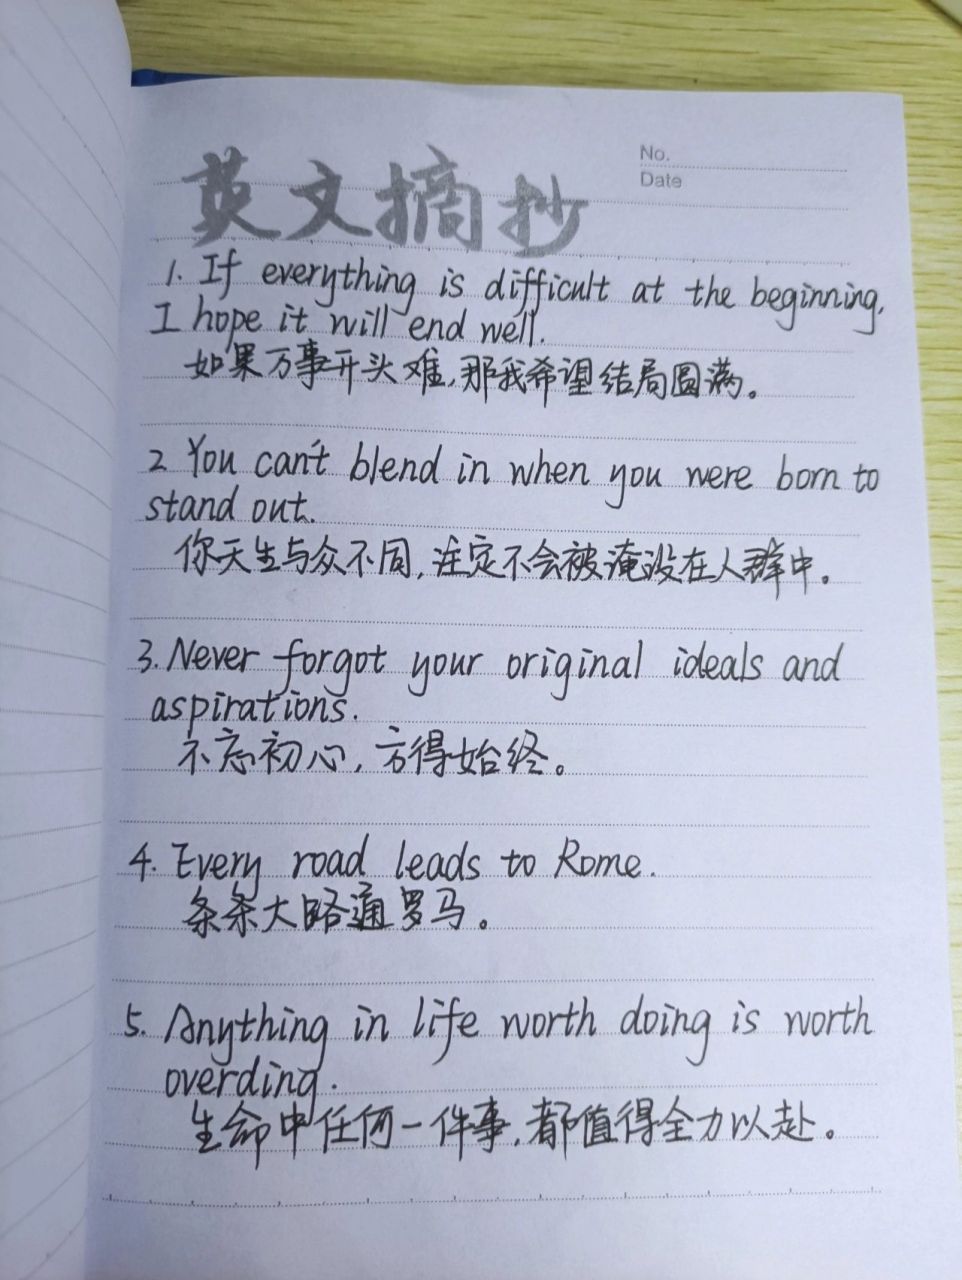 英文摘抄
No.
Date
1. If everything is difficult at the beginning,
I hope it will end well.
如果万事开头难,那我希望结局圆满。
2 You can't blend in when you were born to
stand out.
你天生与众不同,注定不会被淹没在人群中。
3. Never forgot your original ideals and
aspirations.
不忘初心,方得始终。
4. Every road leads to Rome.
条条大路通罗马。
5. Anything in life worth doing is worth
overding.
生命中任何一件事,都值得全力以赴。